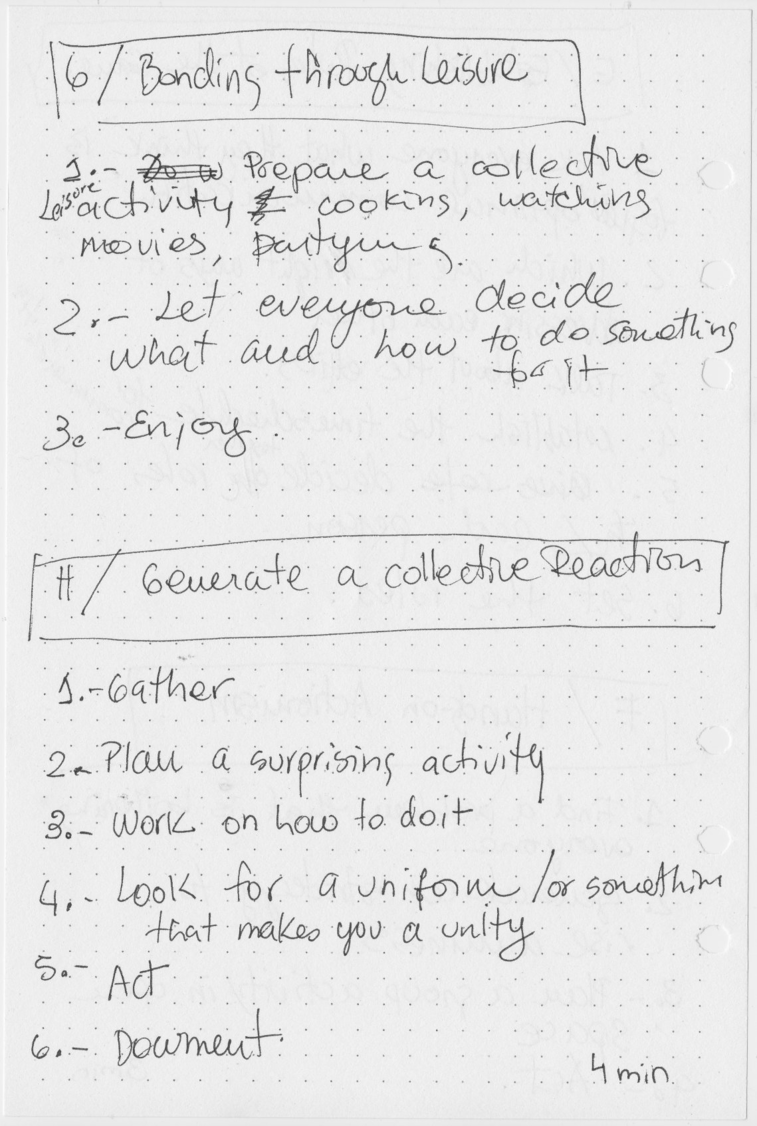 G/ Bonding through Leisure
1.- Prepare a collective
Leisure activity cooking, watching
movies, partying.
2.- Let everyone decide
what and how to do something
for it
3. - Enjoy.
H/ Generate a collective Reaction
1.- Gather
2. Plan a surprising activity
3.- Work on how to do it
4.- Look for a uniform /or somethin
that makes you a unity
5.- Act
6.- Document.
4 min